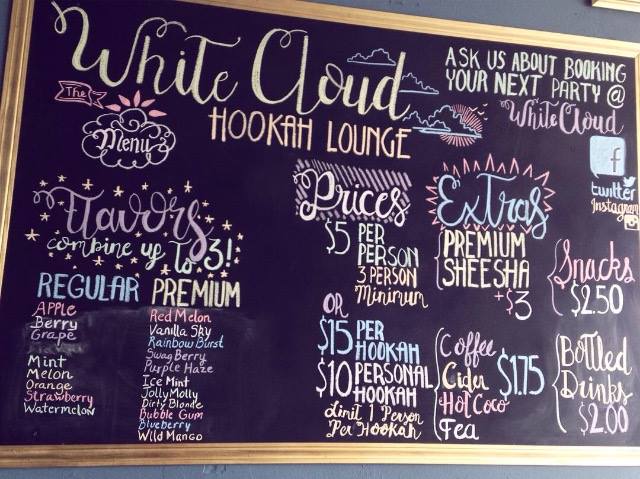 White Cloud
HOOKAH LOUNGE
The
Menu
ASK US ABOUT BOOKING
YOUR NEXT PARTY @
White Cloud
f
twitter
Instagram
Flavors
combine up to 3!
REGULAR
APPLE
Berry
Grape
Mint
Melon
Orange
Strawberry
Watermelon
PREMIUM
Red Melon
Vanilla Sky
Rainbow Burst
Swag Berry
Purple Haze
Ice Mint
Jolly Molly
Dirty Blonde
Bubble Gum
Blueberry
Wild Mango
Prices
$5 PER
PERSON
3 PERSON
Minimum
OR
$15 PER
HOOKAH
$10 PERSONAL
HOOKAH
Limit 1 Person
Per Hookah
Extras
PREMIUM
SHEESHA
+$3
Coffee
Cider
Hot Coco
Tea
$1.75
Snacks
$2.50
Bottled
Drinks
$2.00